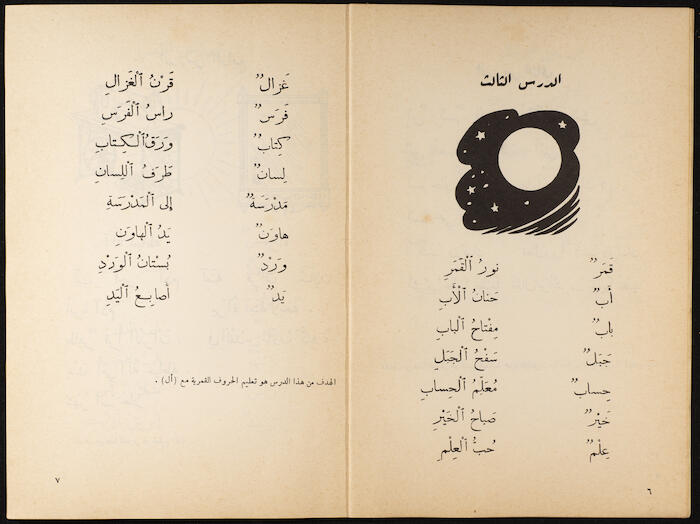 الدرس الثالث
قَمَرٌ نورُ ٱلْقَمَرِ
أَبٌ حَنانُ ٱلْأَبِ
بابٌ مِفْتاحُ ٱلْبابِ
جَبَلٌ سَفْحُ ٱلْجَبَلِ
حِسابٌ مُعَلِّمُ ٱلْحِسابِ
خَيْرٌ صَباحُ ٱلْخَيْرِ
عِلْمٌ حُبُّ ٱلْعِلْمِ
٦
غَزالٌ قَرْنُ ٱلْغَزالِ
فَرَسٌ راسُ ٱلْفَرَسِ
كِتابٌ وَرَقُ ٱلْكِتابِ
لِسانٌ طَرَفُ ٱللِسانِ
مَدْرَسَةٌ إِلى ٱلْمَدْرَسَةِ
هاوَنٌ يَدُ ٱلْهاوَنِ
وَرْدٌ بُسْتانُ ٱلْوَرْدِ
يَدٌ أَصابِعُ ٱلْيَدِ
الهدف من هذا الدرس هو تعليم الحروف القمرية مع (أل) .
٧